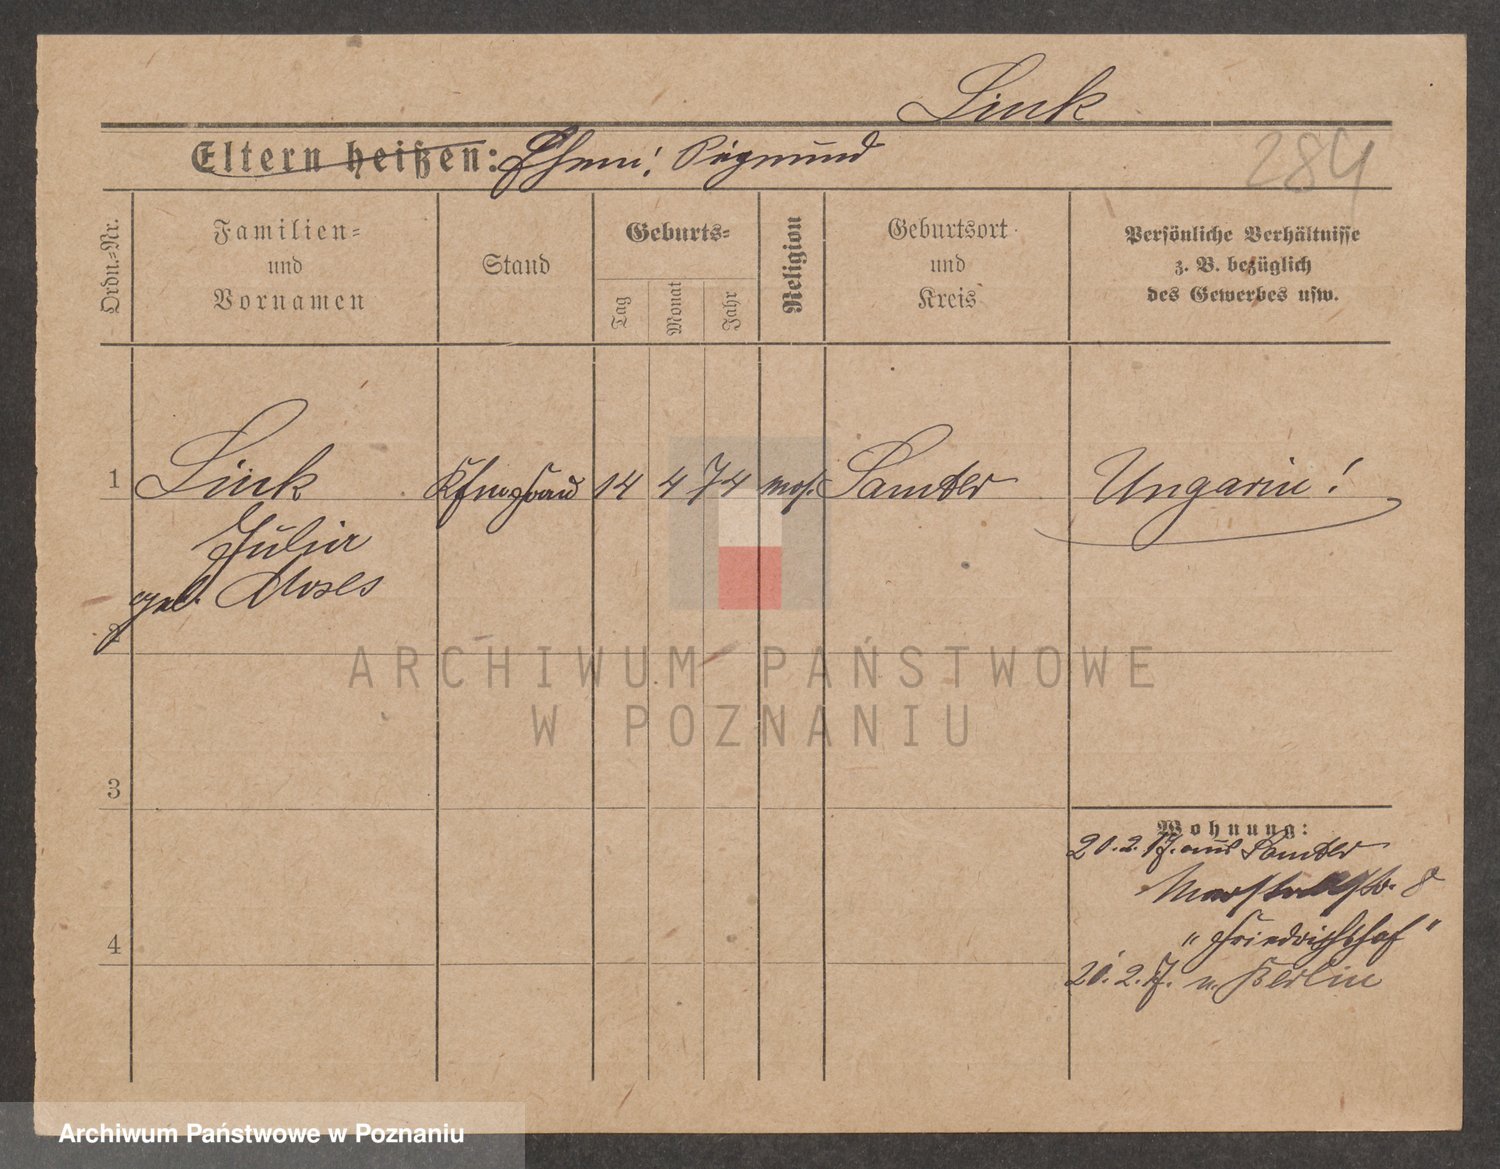 Link
Eltern heißen: Ehem: Sigmund
284
Ordn.-Nr.
Familien-
und
Vornamen
Stand
Geburts-
Tag
Monat
Jahr
Religion
Geburtsort
und
Kreis
Persönliche Verhältnisse
z. B. bezüglich
des Gewerbes usw.
1 Link Kfmgsfrau 14 4 74 mos. Samter Ungarin!
Julia
geb. Moses
2
ARCHIWUM PAŃSTWOWE
W POZNANIU
3
Wohnung:
20.2.17. aus Samter
8
"Friedrichshof"
4
20.2.17. n. Berlin
Archiwum Państwowe w Poznaniu